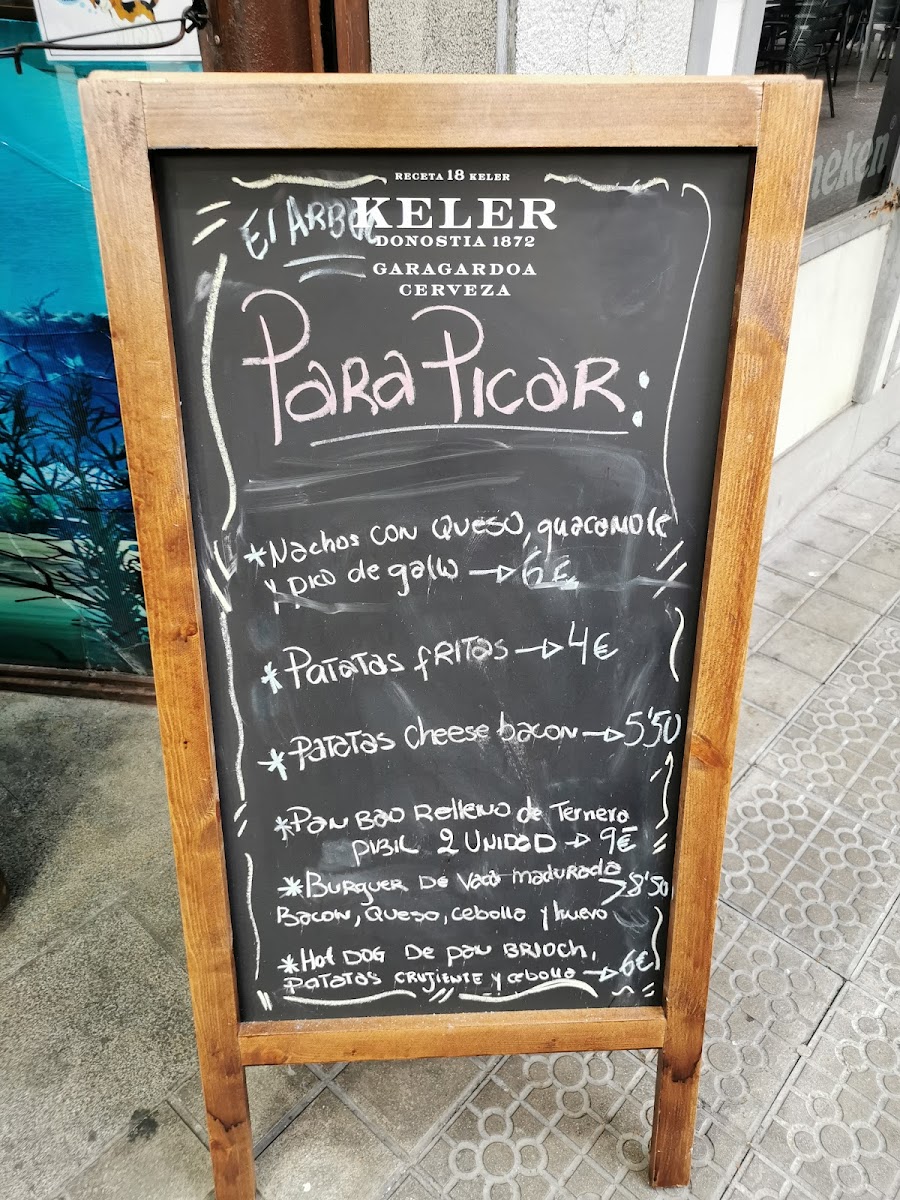 RECETA 18 KELER
KELER
El ARBOL
DONOSTIA 1872
GARAGARDOA
CERVEZA
PARA PICAR:
*Nachos con Queso, guacamole
y pico de gallo → 6€
*Patatas fritas → 4€
*Patatas cheese bacon → 5'50
*Pan Bao Relleno de Ternera
pibil 2 UNIDAD → 9€
*Burguer de vaca madurada > 8'50
Bacon, Queso, cebolla y huevo
*Hot DOG De pan BRIOCH,
patatas crujiente y cebolla → 6€
neken